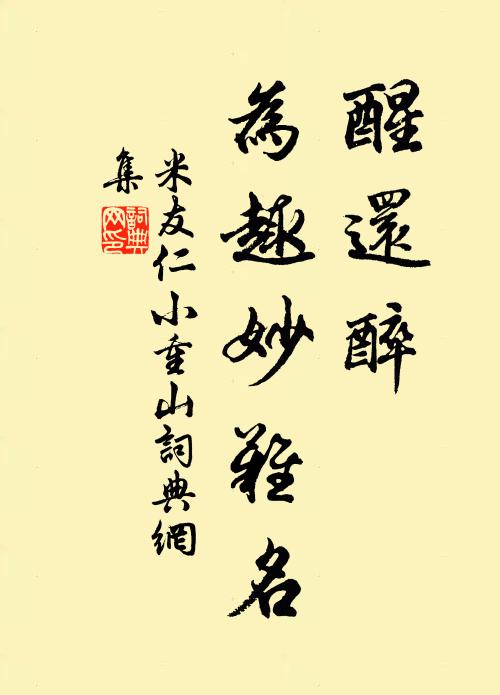 醒還醉
為趣妙難名
米友仁小重山詞典網
集
詞典
网印